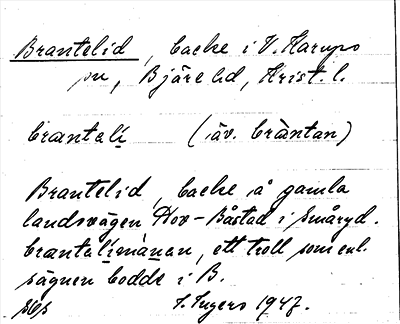 Brantelid, backe i V. Karups
sn, Bjäre hd, Krist. l.
brantalí (äv. bràntan)
Brantelid, backe å gamla
landsvägen Hov–Båstad i Småryd.
brantalímànen, ett troll som enl.
sägnen bodde i B.
I. Ingers 1947.